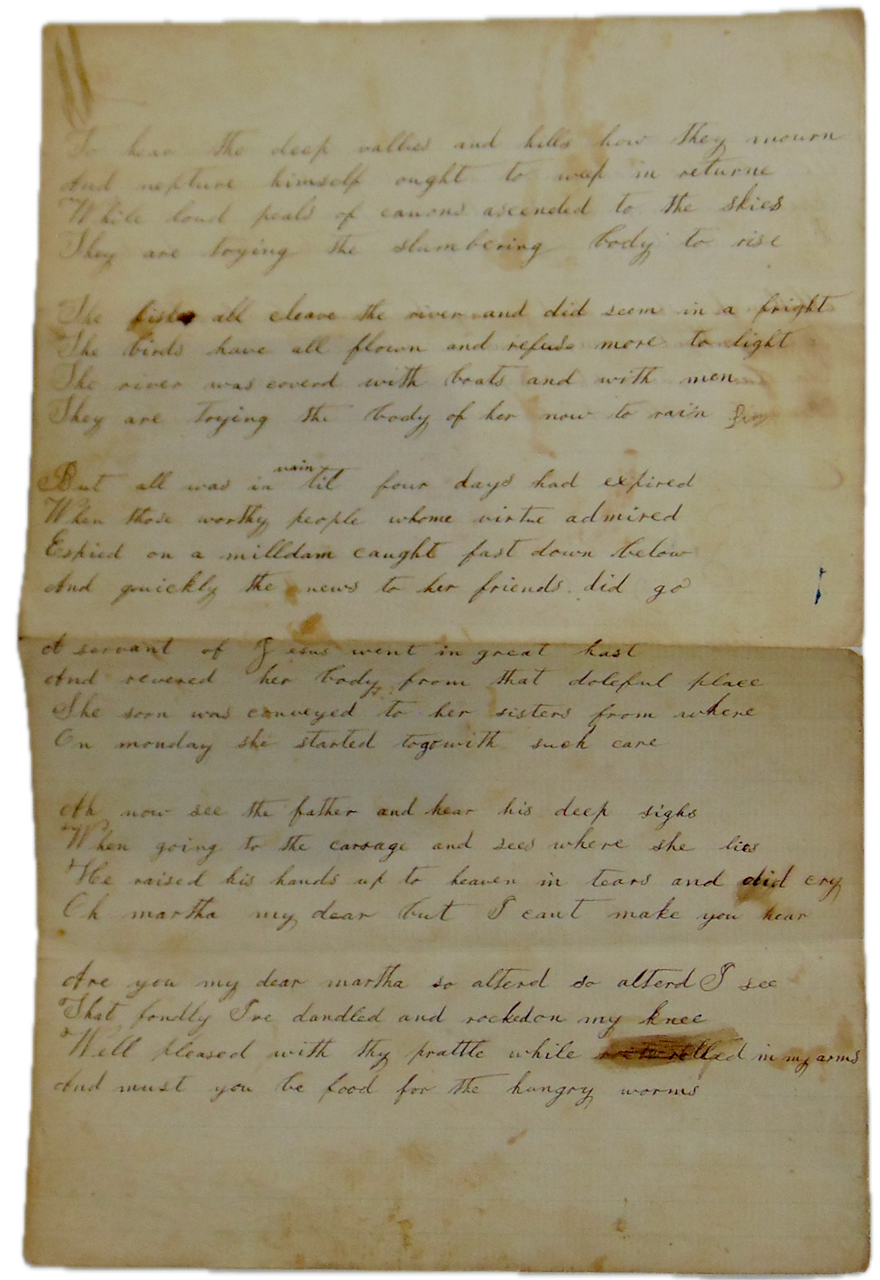 To hear the deep vallies and hills how they mourn
And nepture himself ought to weep in returne
While loud peals of canons ascended to the skies
They are toying the slumbering body to rise
The fish all cleave the river and did seem in a fright
The birds have all flown and refuse more to light
The river was coverd with boats and with men
They are toying the body of her now to rain
But all was in vain til four days had expired
When those worthy people whome virtue admired
Espied on a milldam caught fast down below
And quickly the news to her friends did go
A servant of Jesus went in great hast
And revered her body from that doleful place
She soon was conveyed to her sisters from where
On monday she started to go with such care
Ah now see the father and hear his deep sighs
When going to the carrage and sees where she lies
He raised his hands up to heaven in tears and did cry
Oh martha my dear but I cant make you hear
Are you my dear martha so alterd so alterd I see
That fondly I've dandled and rocked on my knee
Well pleased with thy prattle while rolled in my arms
And must you be food for the hungry worms